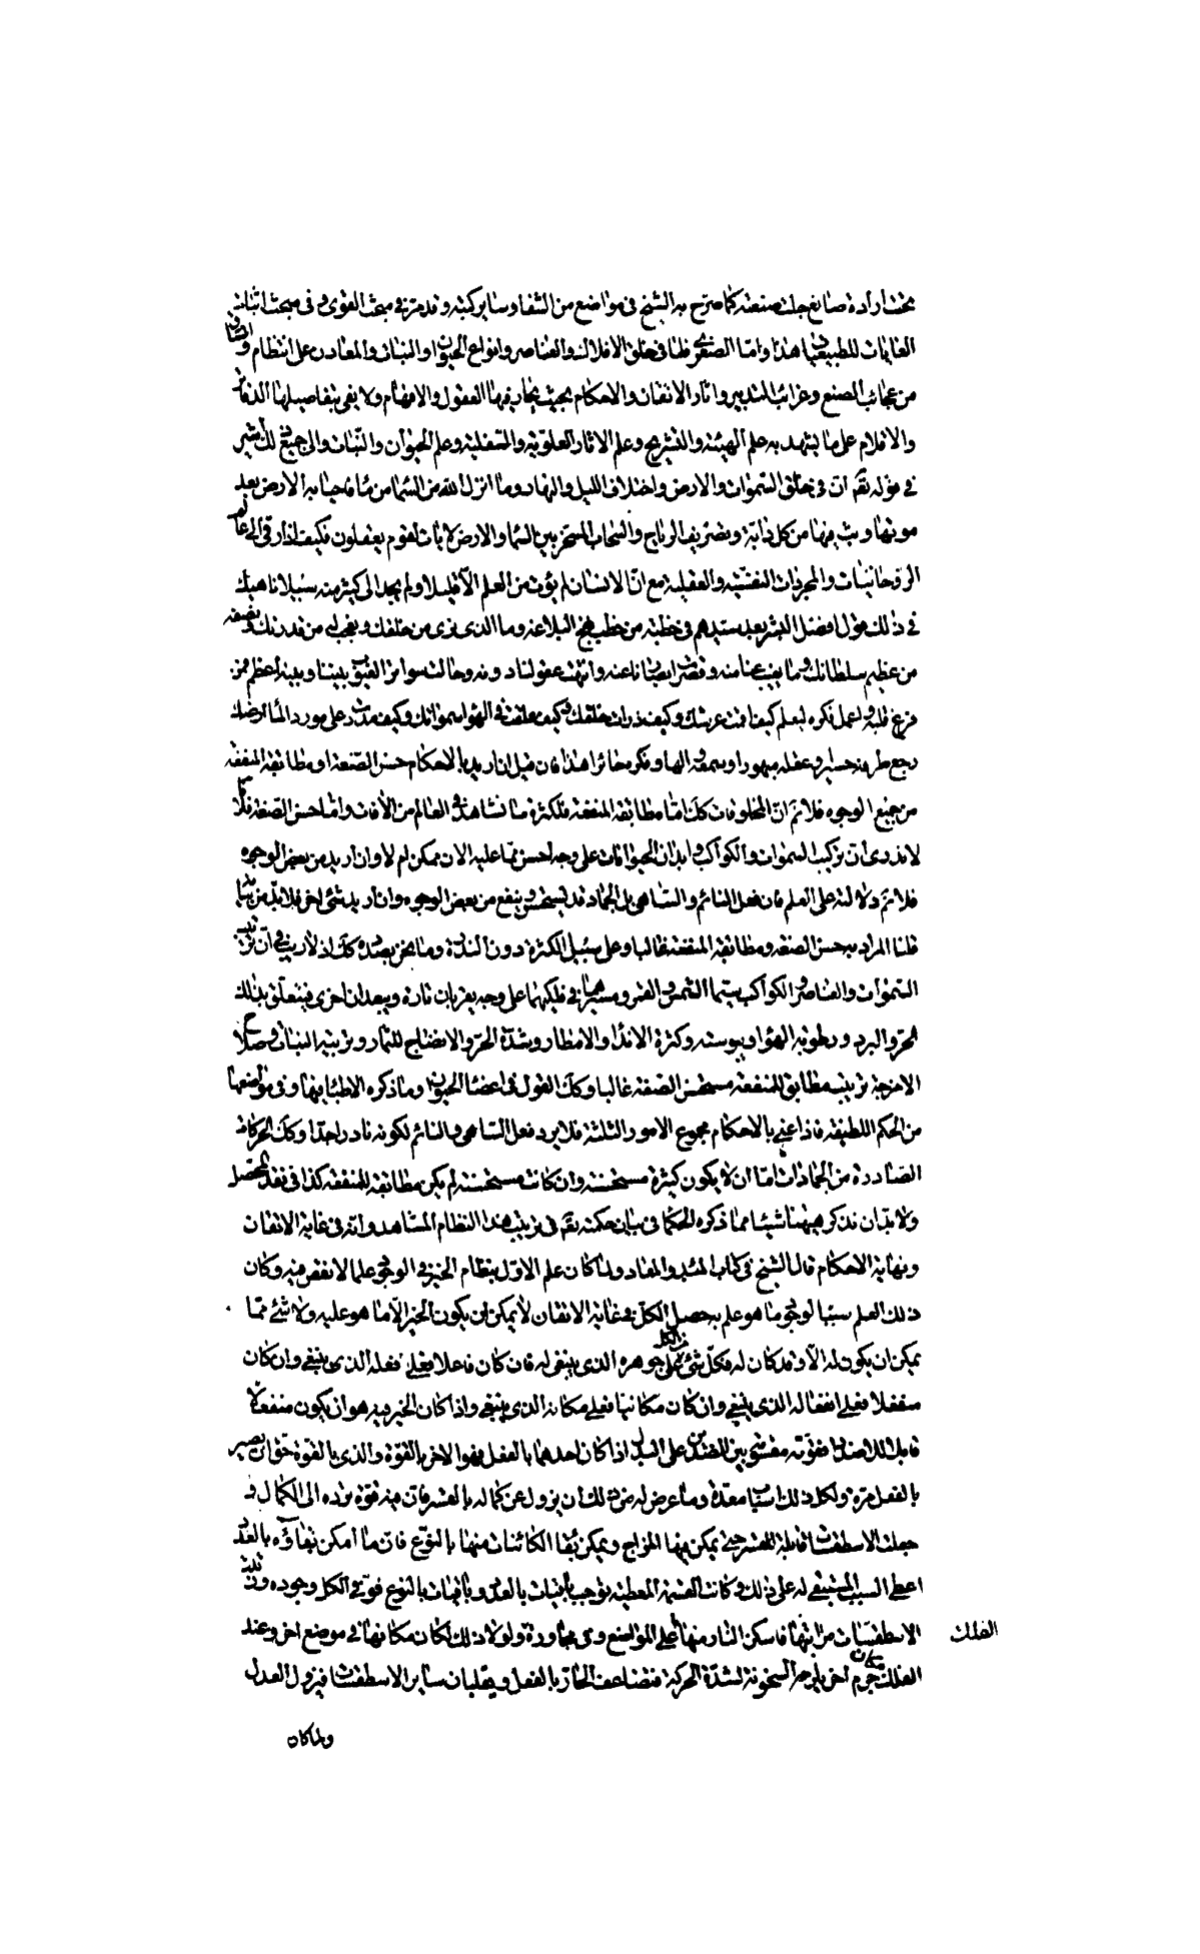 تحت ارادة صانع جلت صنعته كما صرح به الشيخ فى مواضع من الشفا وساير كتبه وقد مر فى مبحث القوى وفى مبحث اثبات
الغايات للطبيعيات هذا واما الصغرى فلما فى خلق الافلاك والعناصر وانواع الحيوان والنبات والمعادن على انتظام واتساق
من عجائب الصنع وغرائب التدبير واثار الاتقان والاحكام بحيث يحار فيها العقول والافهام ولا يفى بتفاصيلها الدفاتر
والاقلام على ما يشهد به علم الهيئة والتشريح وعلم الاثار العلوية والسفلية وعلم الحيوان والنبات والى جميع ذلك اشير
فى قوله تقم ان فى خلق السموات والارض واختلاف الليل والنهار وما انزل الله من السما من ماء فاحيا به الارض بعد
موتها وبث فيها من كل دابة وتصريف الرياح والسحاب المسخر بين السما والارض لايات لقوم يعقلون فكيف اذا رقى الى عالم
الروحانيات والمجردات النفسية والعقلية مع ان الانسان لم يؤت من العلم الا قليلا ولم يجد الى كثير منه سبيلا ناهيك
فى ذلك قول افضل البشر بعد سيدهم فى خطبة من خطب نهج البلاغه وما الذى نرى من خلقك ونعجب له من قدرتك ونصفه
من عظيم سلطانك وما يغيب عنا منه وقصرت ابصارنا عنه وانتهت عقولنا دونه وحالت سواتر الغيوب بيننا وبينه اعظم فمن
فرغ قلبه واعمل فكره ليعلم كيف اقمت عرشك وكيف ذرات خلقك وكيف علقت فى الهوا سمواتك وكيف مددت على مور الماء ارضك
رجع طرفه حسيرا وعقله مبهورا وسمعه والها وفكره حائرا هذا فان قيل ان اريد بالاحكام حسن الصنعة او مطابقة المنفعة
من جميع الوجوه فلانم ان المخلوقات كك اما مطابقة المنفعة فلكثرة ما نشاهد فى العالم من الافات واما حسن الصنعة فلانا
لا ندرى ان تركيب السموات والكواكب وابدان الحيوانات على وجه احسن مما عليه الان ممكن ام لا وان اريد من بعض الوجوه
فلانم دلالته على العلم فان فعل النائم والساهى بل الجماد قد يستحسن وينفع من بعض الوجوه وان اريد شئ اخر فلا بد من بيانه
قلنا المراد به حسن الصنعة ومطابقة المنفعة غالبا وعلى سبيل الكثرة دون الندرة وما نحن بصدده كك اذ لا ريب فى ان ترتيب
السموات والعناصر والكواكب سيما الشمس والقمر ومسيرهما فى فلكيهما على وجه يقربان تارة ويبعدان اخرى فيتعلق بذلك
الحر والبرد ورطوبة الهوا ويبوسته وكثرة الاندا والامطار وشدة الحر والانضاج للثمار وتربية النبات وصلاح
الامزجة ترتيب مطابق للمنفعة مستحسن الصنعة غالبا وكك القول فى اعضا الحيوان وما ذكره الاطبا فيها وفى مواضعها
من الحكم اللطيفه فاذا عنى بالاحكام مجموع الامور الثلثة فلا يرد فعل الساهى والنائم لكونه نادرا جدا وكك الحركات
الصادرة من الجمادات اما ان لا يكون كثيرة مستحسنة وان كانت مستحسنة لم يكن مطابقة للمنفعة كذا فى نقد المحصل
ولا بد ان نذكر ههنا شيئا مما ذكره الحكما فى بيان حكمته تقم فى ترتيب هذا النظام المشاهد وانه فى غاية الاتقان
ونهاية الاحكام قال الشيخ فى كتاب المبدء والمعاد ولما كان علم الاول بنظام الخير فى الوجود علما لا نقص فيه وكان
ذلك العلم سببا لوجود ما هو علم به حصل الكل فى غاية الاتقان لا يمكن ان يكون الخير الا ما هو عليه ولا شئ مما
يمكن ان يكون له الا وقد كان له فكل شئ من الكل على جوهره الذى ينبغى له فان كان فاعلا فعلى فعله الذى ينبغى وان كان
منفعلا فعلى انفعاله الذى ينبغى وان كان مكانيا فعلى مكانه الذى ينبغى واذا كان الخير فيه هو ان يكون منفعلا
قابلا للاضداد فقوته مقسومة بين الضدين على البدل اذا كان احدهما بالفعل فهو الاخر بالقوة والذى بالقوة حق ان يصير
بالفعل مرة ولكل ذلك اسباب معدة وما عرض له من ذلك ان يزول عن كماله بالقسر فان فيه قوة ترده الى الكمال و
جعلت الاسطقسات قابلة للقسر حتى يمكن فيها المزاج ويمكن بقا الكائنات منها بالنوع فان ما امكن بقاؤه بالعدد
اعطى السبب المستبقى له على ذلك وكانت القسمة العقلية توجب باقيات بالعدد وباقيات بالنوع فوفى الكل وجوده ورتبت
الاسطقسات مراتبها فاسكن النار منها اعلى المواضع وفى مجاورة الفلك ولولا ذلك لكان مكانها فى موضع اخر وعند
الفلك مكان جرم اخر يلزمه السخونة لشدة الحركة فتضاعف الحار بالفعل ويغلبان ساير الاسطقسات فيزول العدل
ولما كان